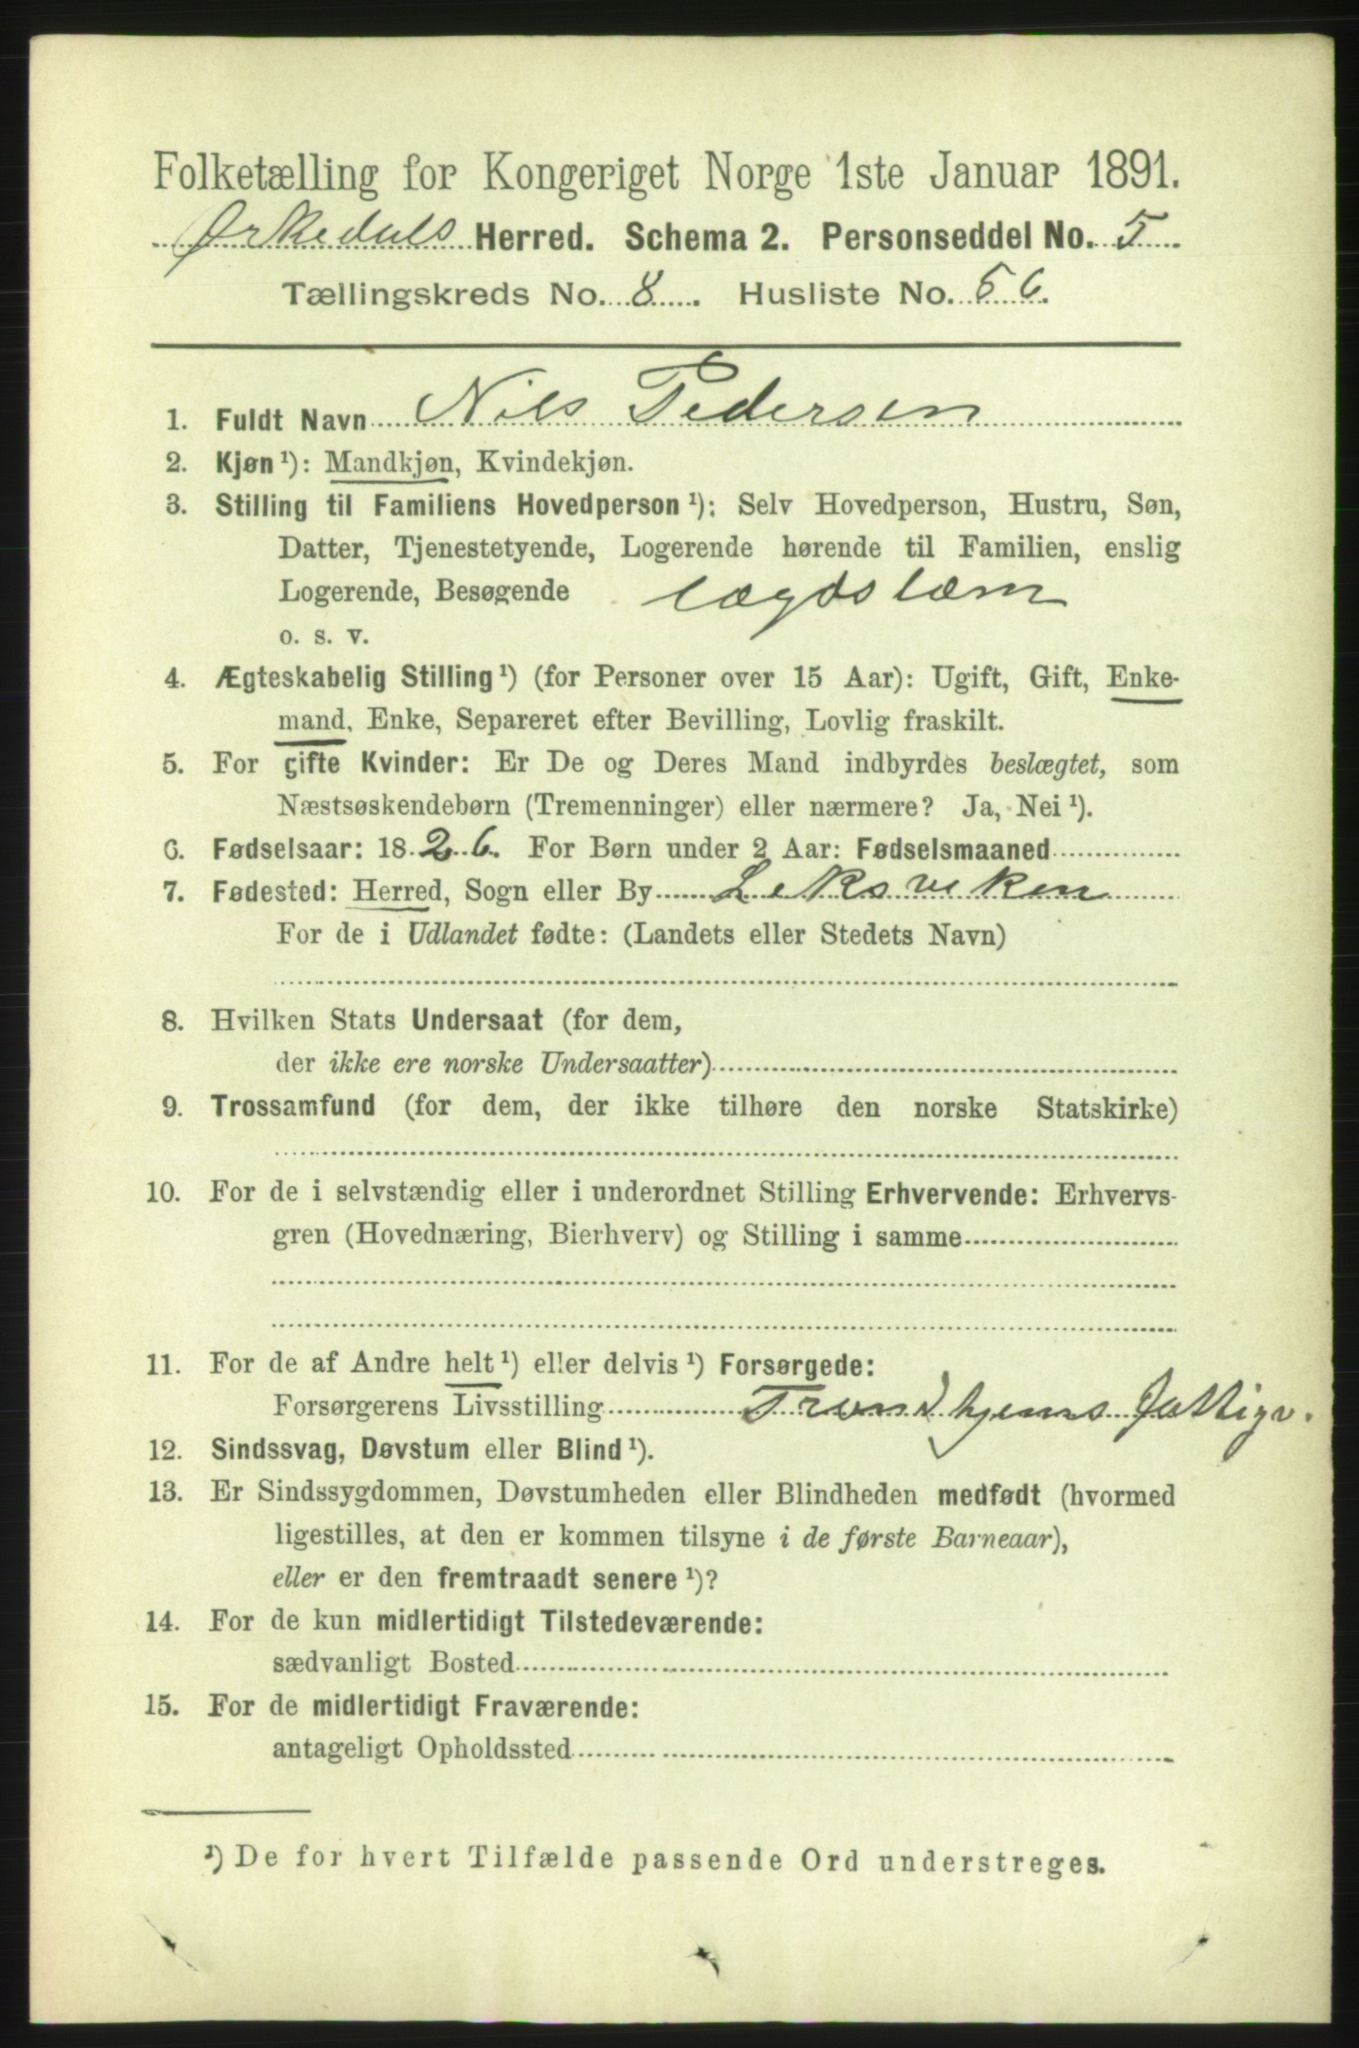 Folketælling for Kongeriget Norge 1ste Januar 1891.
Ørkedals Herred. Schema 2. Personseddel No. 5
Tællingskreds No. 8. Husliste No. 56.
1. Fuldt Navn Nils Pedersen
2. Kjøn ¹): Mandkjøn, Kvindekjøn.
3. Stilling til Familiens Hovedperson ¹): Selv Hovedperson, Hustru, Søn,
Datter, Tjenestetyende, Logerende hørende til Familien, enslig
Logerende, Besøgende lægdslæm
o. s. v.
4. Ægteskabelig Stilling ¹) (for Personer over 15 Aar): Ugift, Gift, Enke-
mand, Enke, Separeret efter Bevilling, Lovlig fraskilt.
5. For gifte Kvinder: Er De og Deres Mand indbyrdes beslægtet, som
Næstsøskendebørn (Tremenninger) eller nærmere? Ja, Nei ¹).
6. Fødselsaar: 1826. For Børn under 2 Aar: Fødselsmaaned
7. Fødested: Herred, Sogn eller By Leksviken
For de i Udlandet fødte: (Landets eller Stedets Navn)
8. Hvilken Stats Undersaat (for dem,
der ikke ere norske Undersaatter)
9. Trossamfund (for dem, der ikke tilhøre den norske Statskirke)
10. For de i selvstændig eller i underordnet Stilling Erhvervende: Erhvervs-
gren (Hovednæring, Bierhverv) og Stilling i samme
11. For de af Andre helt ¹) eller delvis ¹) Forsørgede:
Forsørgerens Livsstilling Trondhjems Fattigv.
12. Sindssvag, Døvstum eller Blind ¹).
13. Er Sindssygdommen, Døvstumheden eller Blindheden medfødt (hvormed
ligestilles, at den er kommen tilsyne i de første Barneaar),
eller er den fremtraadt senere ¹)?
14. For de kun midlertidigt Tilstedeværende:
sædvanligt Bosted
15. For de midlertidigt Fraværende:
antageligt Opholdssted
¹) De for hvert Tilfælde passende Ord understreges.